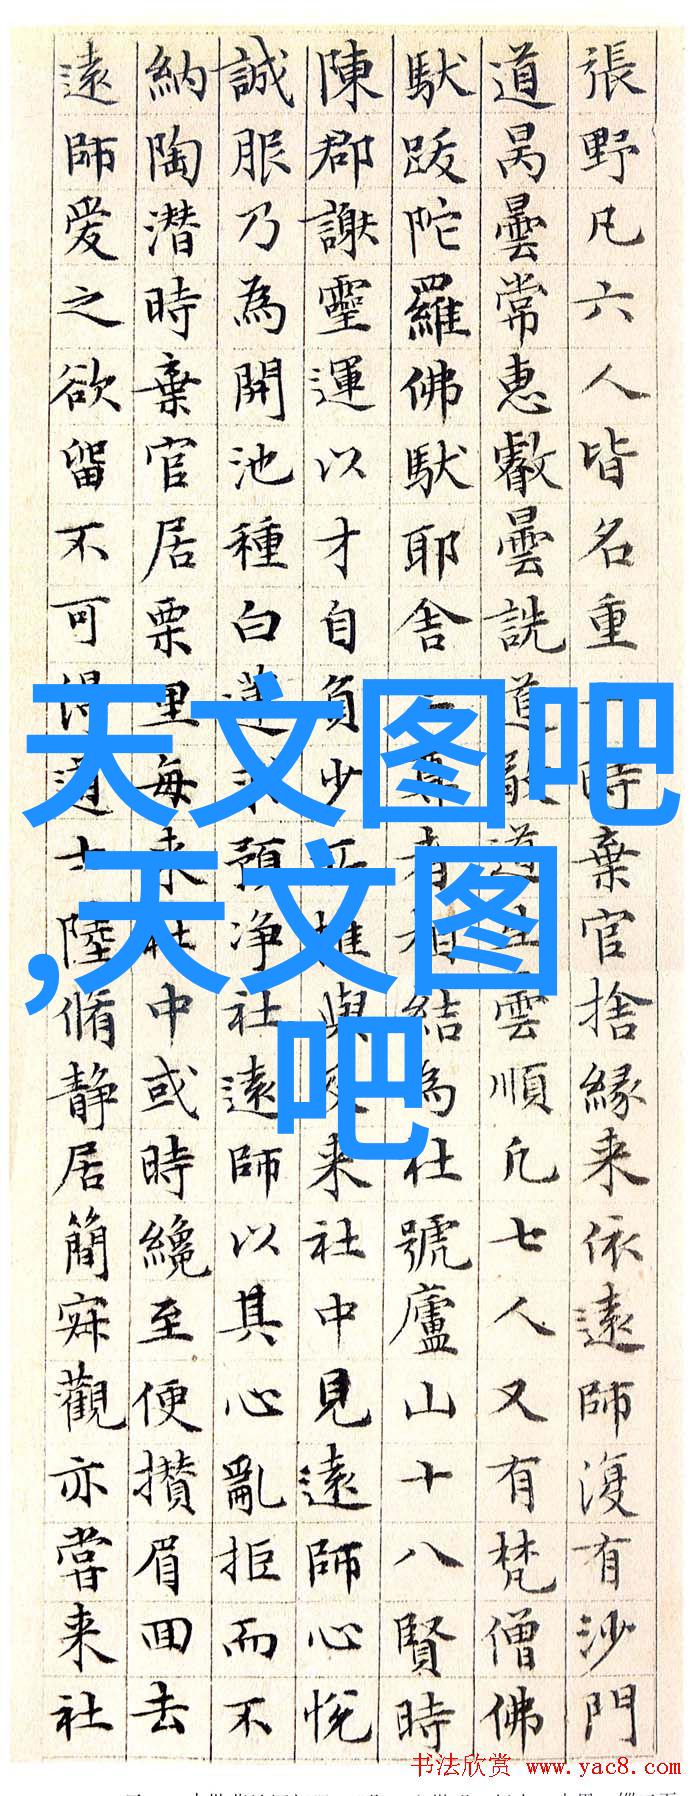 張野凡六人皆名重一時棄官捨緣来依遠師復有沙門
道昺曇常惠叡曇詵道敬道生曇順凡七人又有梵僧佛
馱跋陀羅佛馱耶舍二尊者相結為社號廬山十八賢時
陳郡謝靈運以才自負少所推與及来社中見遠師心悅
誠服乃為開池種白蓮求預淨社遠師以其心亂拒而不
納陶潛時棄官居栗里每来社中或時纔至便攢眉回去
遠師愛之欲留不可得道士陸脩靜居簡寂觀亦嘗来社
天文图吧
,天文图
吧
书法欣赏 www.yac8.com